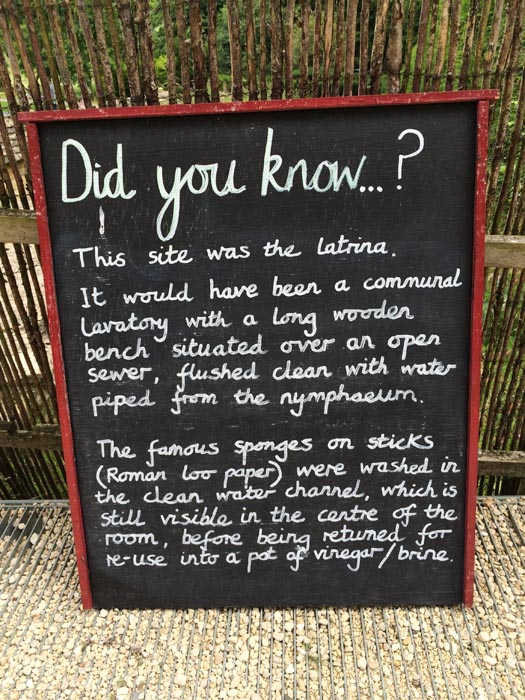 Did you know...?
This site was the latrina.
It would have been a communal
lavatory with a long wooden
bench situated over an open
sewer, flushed clean with water
piped from the nymphaeum.
The famous sponges on sticks
(Roman loo paper) were washed in
the clean water channel, which is
still visible in the centre of the
room, before being returned for
re-use into a pot of vinegar/brine.